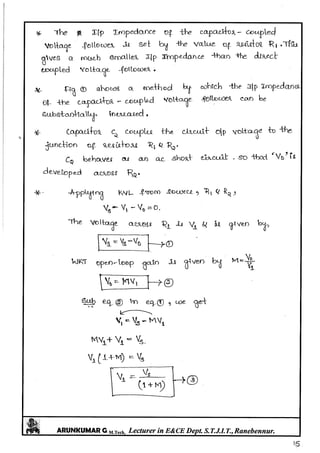 * The I/p Impedance of the capacitor - coupled
voltage follower is set by the value of resistor R1. This
gives a much smaller I/p Impedance than the direct
coupled voltage follower.
* Fig ① shows a method by which the I/p Impedance
of the capacitor - coupled voltage follower can be
substantially increased.
* Capacitor C2 couples the circuit o/p voltage to the
junction of resistors R1 & R2.
C2 behaves as an ac short circuit. so that 'Vo' is
developed across R2.
* Applying KVL from source, R1 & R2,
Vs - V1 - Vo = 0.
The voltage across R1 is V1 & is given by,
V1 = Vs - Vo → ①
WKT open-loop gain is given by M = Vo/V1
Vo = MV1 → ②
Sub eq ② in eq ①, we get
V1 = Vs - MV1
MV1 + V1 = Vs
V1 (1 + M) = Vs
V1 = Vs / (1 + M) → ③
ARUNKUMAR G M.Tech, Lecturer in E&CE Dept. S.T.J.I.T., Ranebennur.
15